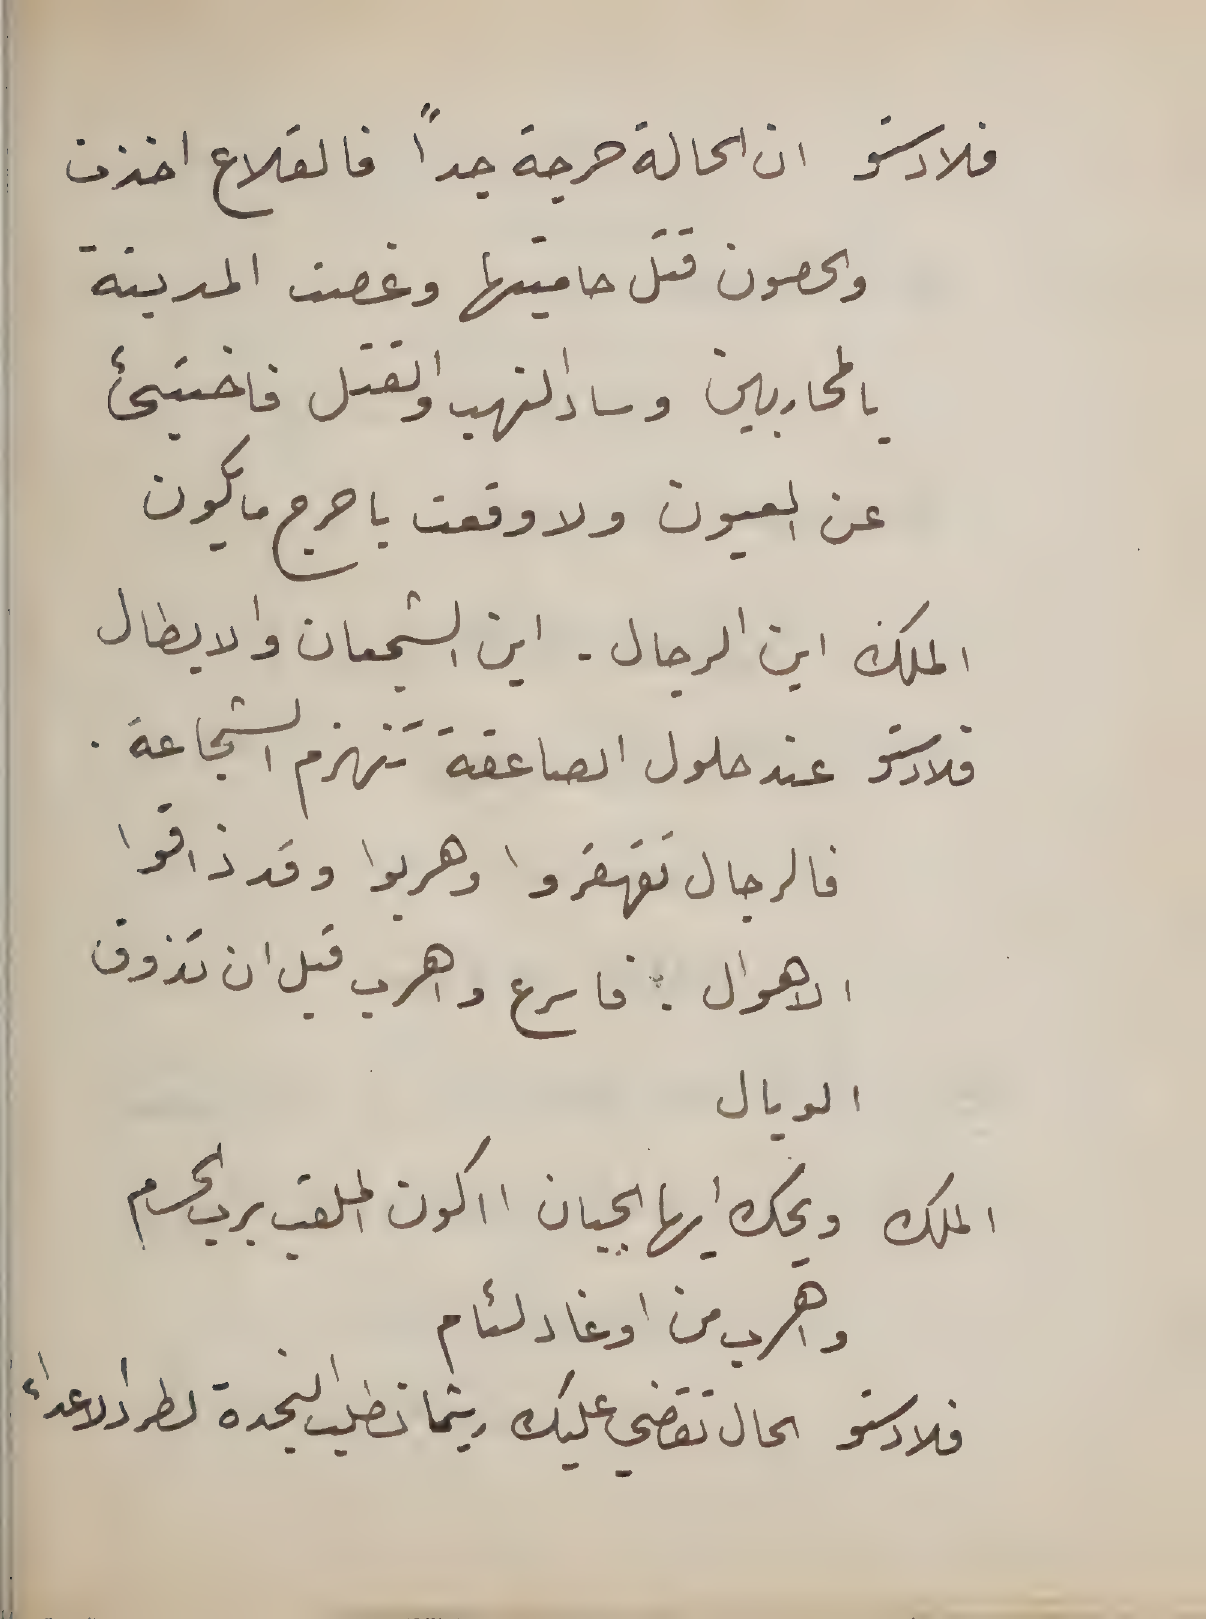 فلادستو ان الحالة حرجة جداً فالقلاع اخذت
والحصون قتل حاميتها وغصت المدينة
بالمحاربين وساد النهب والقتل فاختبئ
عن العيون ولا وقعت باحرج ما يكون
الملك اين الرجال . اين الشجعان والابطال
فلادستو عند حلول الصاعقة تنهزم الشجاعة .
فالرجال تقهقروا وهربوا وقد ذاقوا
الاهوال . فاسرع واهرب قبل ان تذوق
الوبال
الملك ويحك ايها الجبان ااكون الملقب برب الحرم
واهرب من اوغاد لئام
فلادستو الحال تقضي عليك ريثما تطلب النجدة لطرد الاعداء